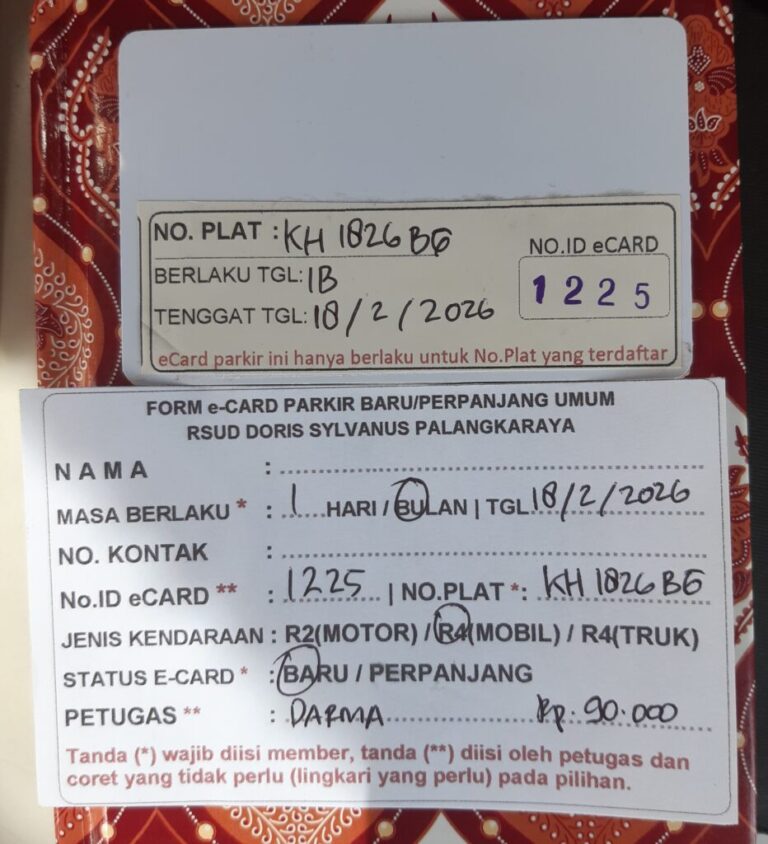 NO. PLAT : KH 1826 BG
NO.ID eCARD
BERLAKU TGL: 1B
1225
TENGGAT TGL: 18/2/2026
eCard parkir ini hanya berlaku untuk No.Plat yang terdaftar
FORM e-CARD PARKIR BARU/PERPANJANG UMUM
RSUD DORIS SYLVANUS PALANGKARAYA
NAMA :
MASA BERLAKU * : 1 HARI / BULAN | TGL 18/2/2026
NO. KONTAK :
No.ID eCARD ** : 1225 | NO.PLAT *: KH 1826 BG
JENIS KENDARAAN : R2(MOTOR) / R4(MOBIL) / R4(TRUK)
STATUS E-CARD * : BARU / PERPANJANG
PETUGAS ** : DARMA Rp. 90.000
Tanda (*) wajib diisi member, tanda (**) diisi oleh petugas dan
coret yang tidak perlu (lingkari yang perlu) pada pilihan.